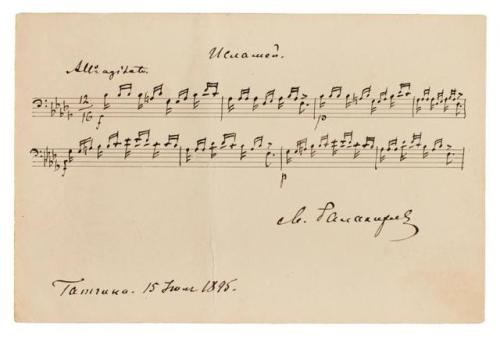 Исламей.
All° agitato.
12
16
f
p
f
p
М. Балакирев
Гатчина. 15 Іюля 1895.